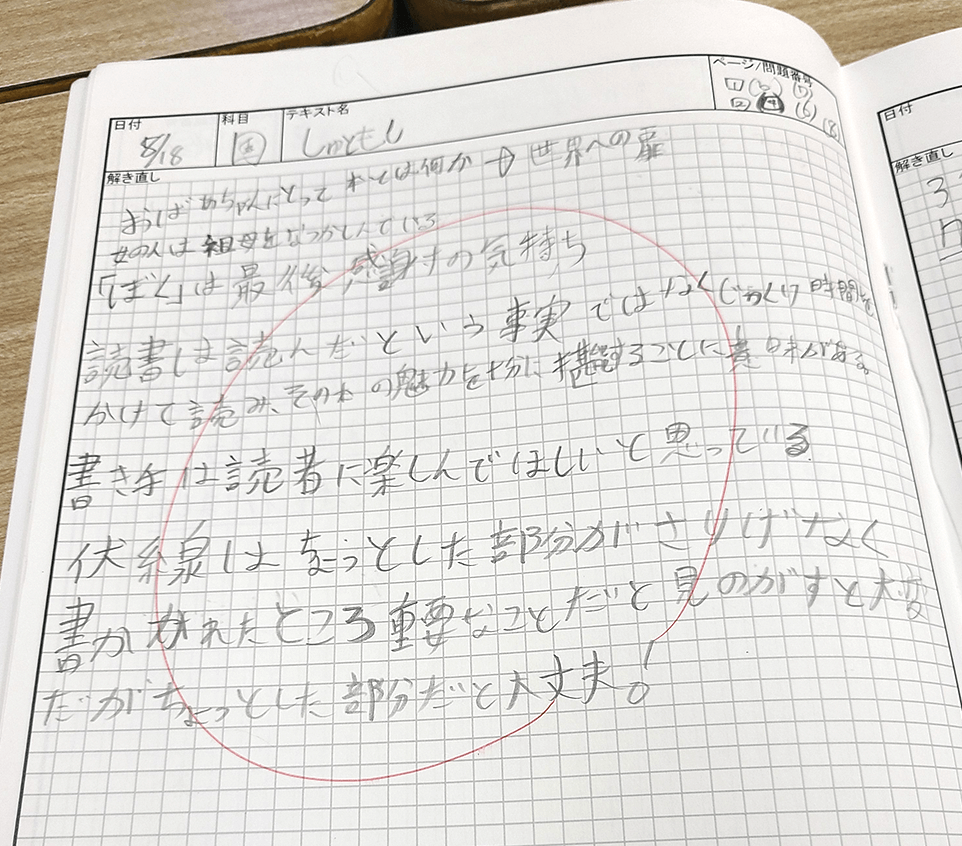 ページ/問題番号
日付
科目
テキスト名
1 (5) (7)
2 (4) (6) (8)
5/18
国
解き直し
おばあちゃんにとって 本とは何か → 世界への扉
女の人は祖母をなつかしんでいる
「ぼく」は最後 感謝の気持ち
読書は読んだという事実ではなくじっくり時間を
かけて読み、そのの魅力を十分に堪能することに意味がある。
書き手は読者に楽しんでほしいと思っている
伏線はちょっとした部分がさりげなく
書かかれたところ重要なことだと見のがすと大変
だがちょっとした部分だと大丈夫!
日付
解き直し
3